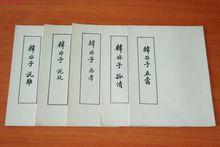 韓非子 說難
韓非子 說疑
韓非子 忠孝
韓非子 孤憤
韓非子 五蠹